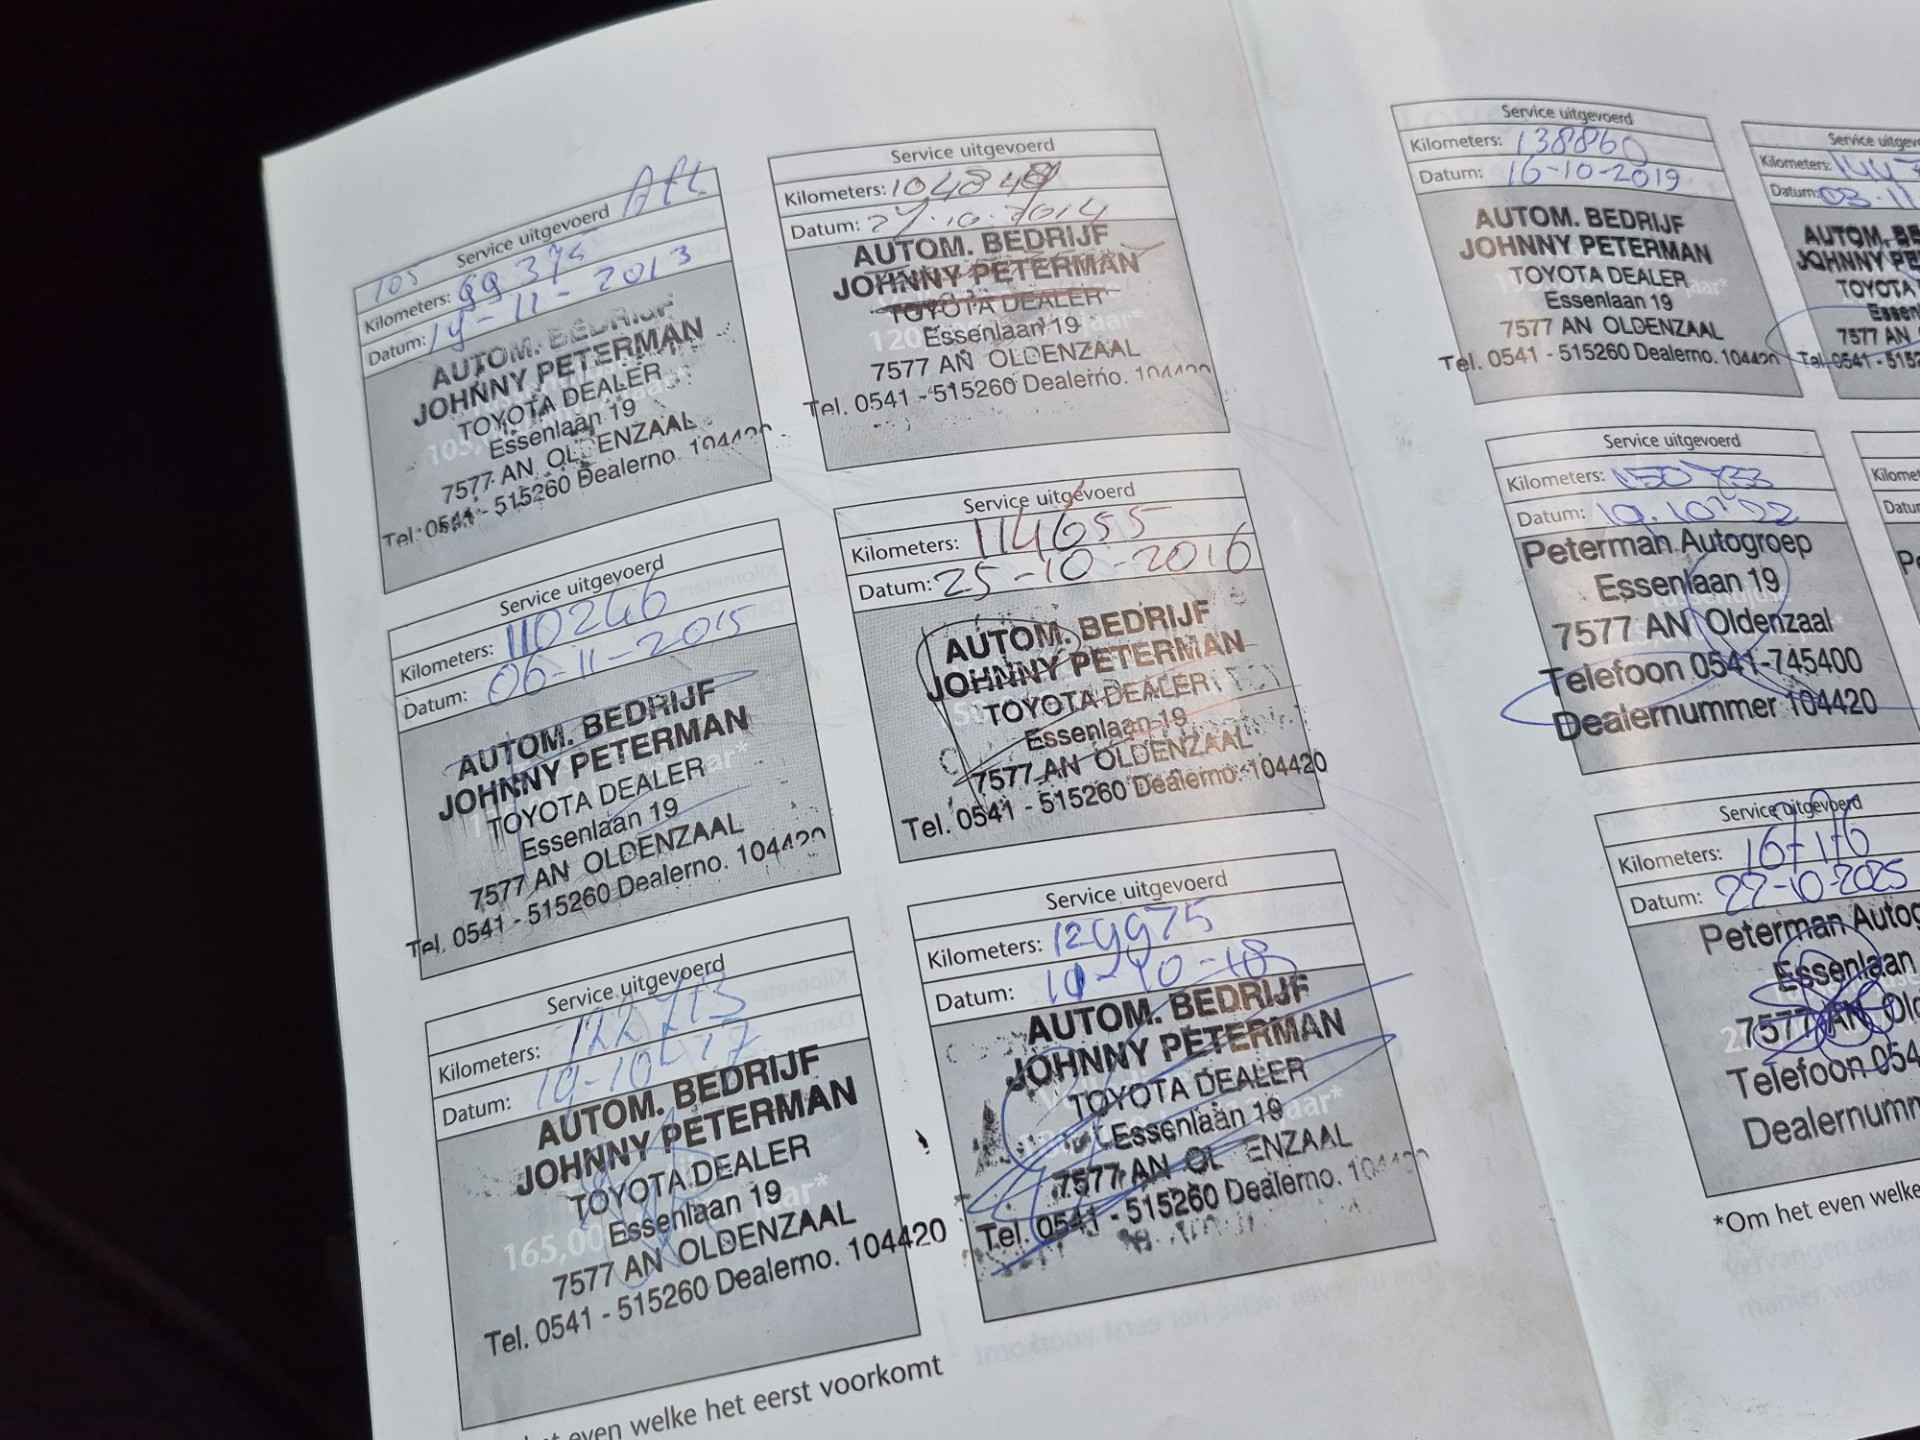 105 Service uitgevoerd
Kilometers: 99375
Datum: 14-11-2013
AUTOM. BEDRIJF
JOHNNY PETERMAN
TOYOTA DEALER
Essenlaan 19
7577 AN OLDENZAAL
Tel. 0541 - 515260 Dealerno. 104420
Service uitgevoerd
Kilometers: 104848
Datum: 27.10.2014
AUTOM. BEDRIJF
JOHNNY PETERMAN
TOYOTA DEALER
Essenlaan 19
7577 AN OLDENZAAL
Tel. 0541 - 515260 Dealerno. 104420
Service uitgevoerd
Kilometers: 110246
Datum: 06-11-2015
AUTOM. BEDRIJF
JOHNNY PETERMAN
TOYOTA DEALER
Essenlaan 19
7577 AN OLDENZAAL
Tel. 0541 - 515260 Dealerno. 104420
Service uitgevoerd
Kilometers: 114655
Datum: 25-10-2016
AUTOM. BEDRIJF
JOHNNY PETERMAN
TOYOTA DEALER
Essenlaan 19
7577 AN OLDENZAAL
Tel. 0541 - 515260 Dealerno. 104420
Service uitgevoerd
Kilometers:
Datum: 19-10-17
AUTOM. BEDRIJF
JOHNNY PETERMAN
TOYOTA DEALER
Essenlaan 19
165,00
7577 AN OLDENZAAL
Tel. 0541 - 515260 Dealerno. 104420
Service uitgevoerd
Kilometers: 129975
Datum:
AUTOM. BEDRIJF
JOHNNY PETERMAN
TOYOTA DEALER
Essenlaan 19
7577 AN OLDENZAAL
Tel. 0541 - 515260 Dealerno.
even welke het eerst voorkomt
Service uitgevoerd
Kilometers: 138860
Datum: 16-10-2019
AUTOM. BEDRIJF
JOHNNY PETERMAN
TOYOTA DEALER
Essenlaan 19
7577 AN OLDENZAAL
Tel. 0541 - 515260 Dealerno. 104420
Service uitgev
Kilometers: 1447
Datum: 03-11
AUTOM. BE
JOHNNY PE
TOYOTA
Essen
7577 AN
Tel. 0541-515
Service uitgevoerd
Kilometers: 150733
Datum: 19.10.22
Peterman Autogroep
Essenlaan 19
7577 AN Oldenzaal
Telefoon 0541-745400
Dealernummer 104420
Kilomet
Datum
Pe
Service uitgevoerd
Kilometers:
Datum: 22-10-2025
Peterman Autog
Essenlaan
7577 AN Old
Telefoon 054
Dealernumm
*Om het even welke